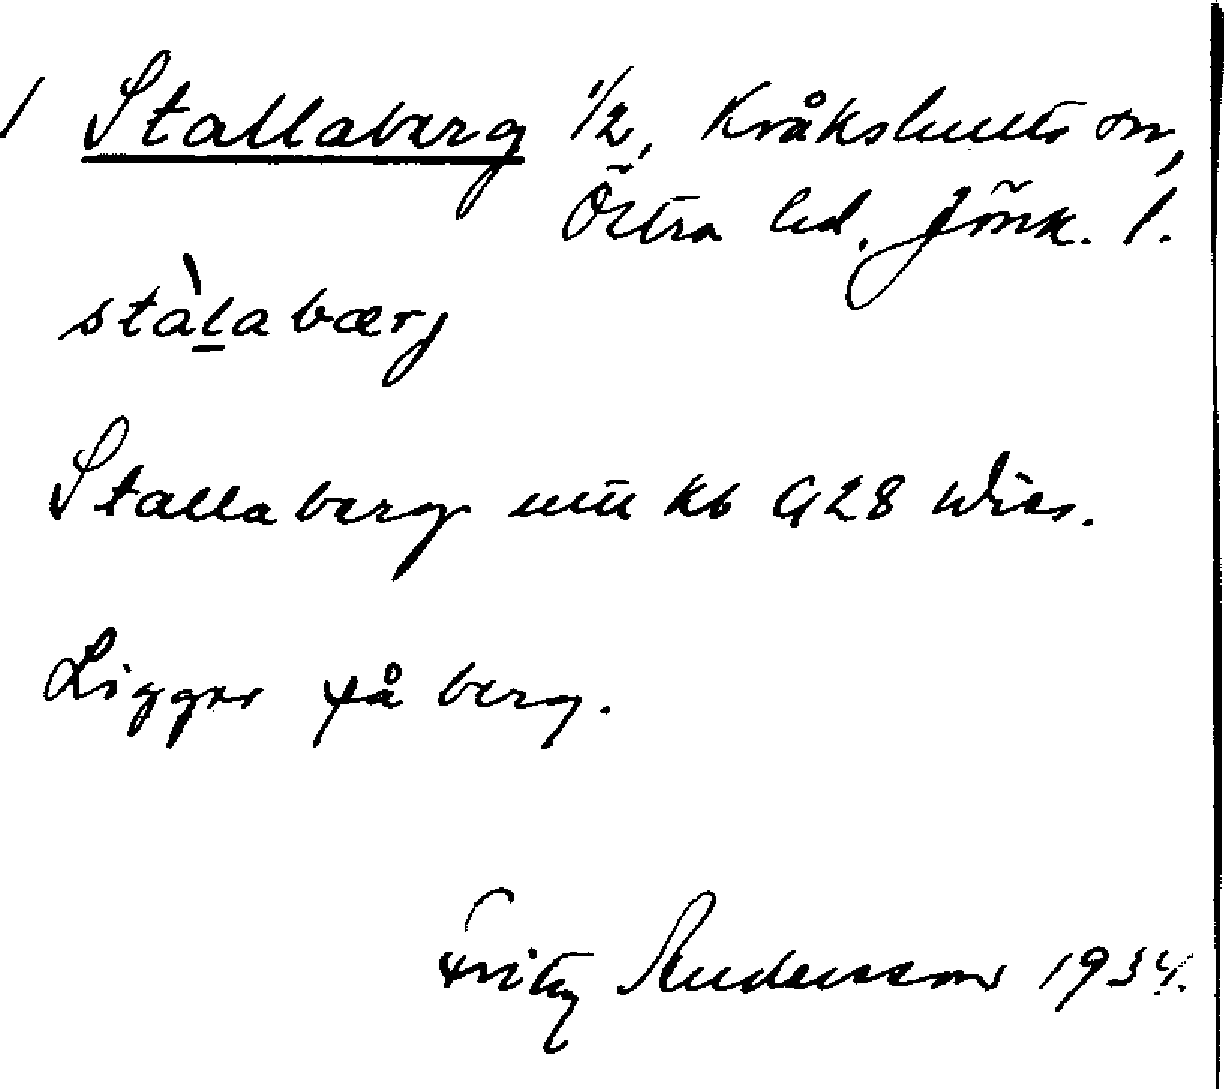 / Stallaberg 1/2, Kråkshults sn,
Östra hd. Jönk. l.
stàlabærj
Stallaberg mü kb G28 Wies.
Ligger på berg.
Fritz Andersson 1934.